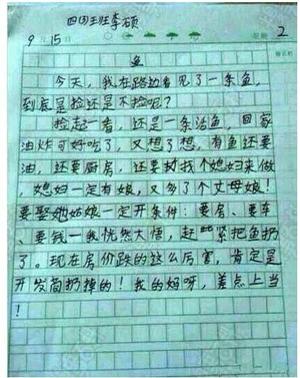 四(1)班李硕
9月15日 星期2
鱼
今天，我在路边看见了一条鱼，
到底是捡还是不捡呢？
捡起一看，还是一条活鱼，回家
油炸可好吃了，又想了想，有鱼还要
油，还要厨房，还要找个媳妇来做
，媳妇一定有娘，又多了个丈母娘！
要娶她姑娘一定开条件：要房、要车
、要钱—我恍然大悟，赶紧把鱼扔
了。现在房价跌的这么厉害，肯定是
开发商扔掉的！我的妈呀，差点上当
！